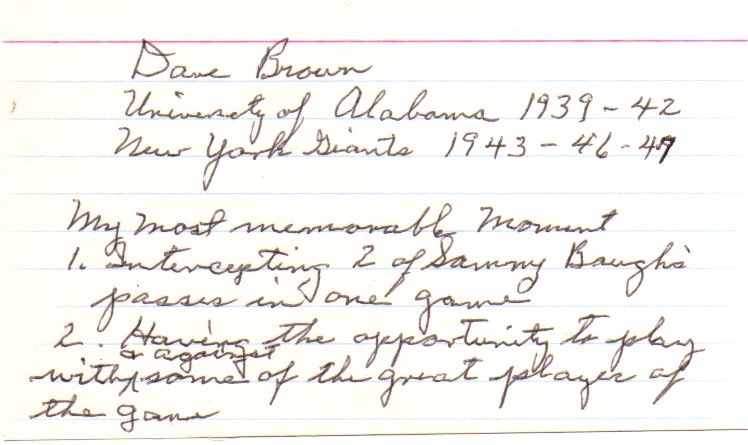 Dave Brown
University of Alabama 1939-42
New York Giants 1943-46-47
My most memorable Moment
1. Intercepting 2 of Sammy Baugh's
passes in one game
2. Having the opportunity to play
or against
with, some of the great player of
the game